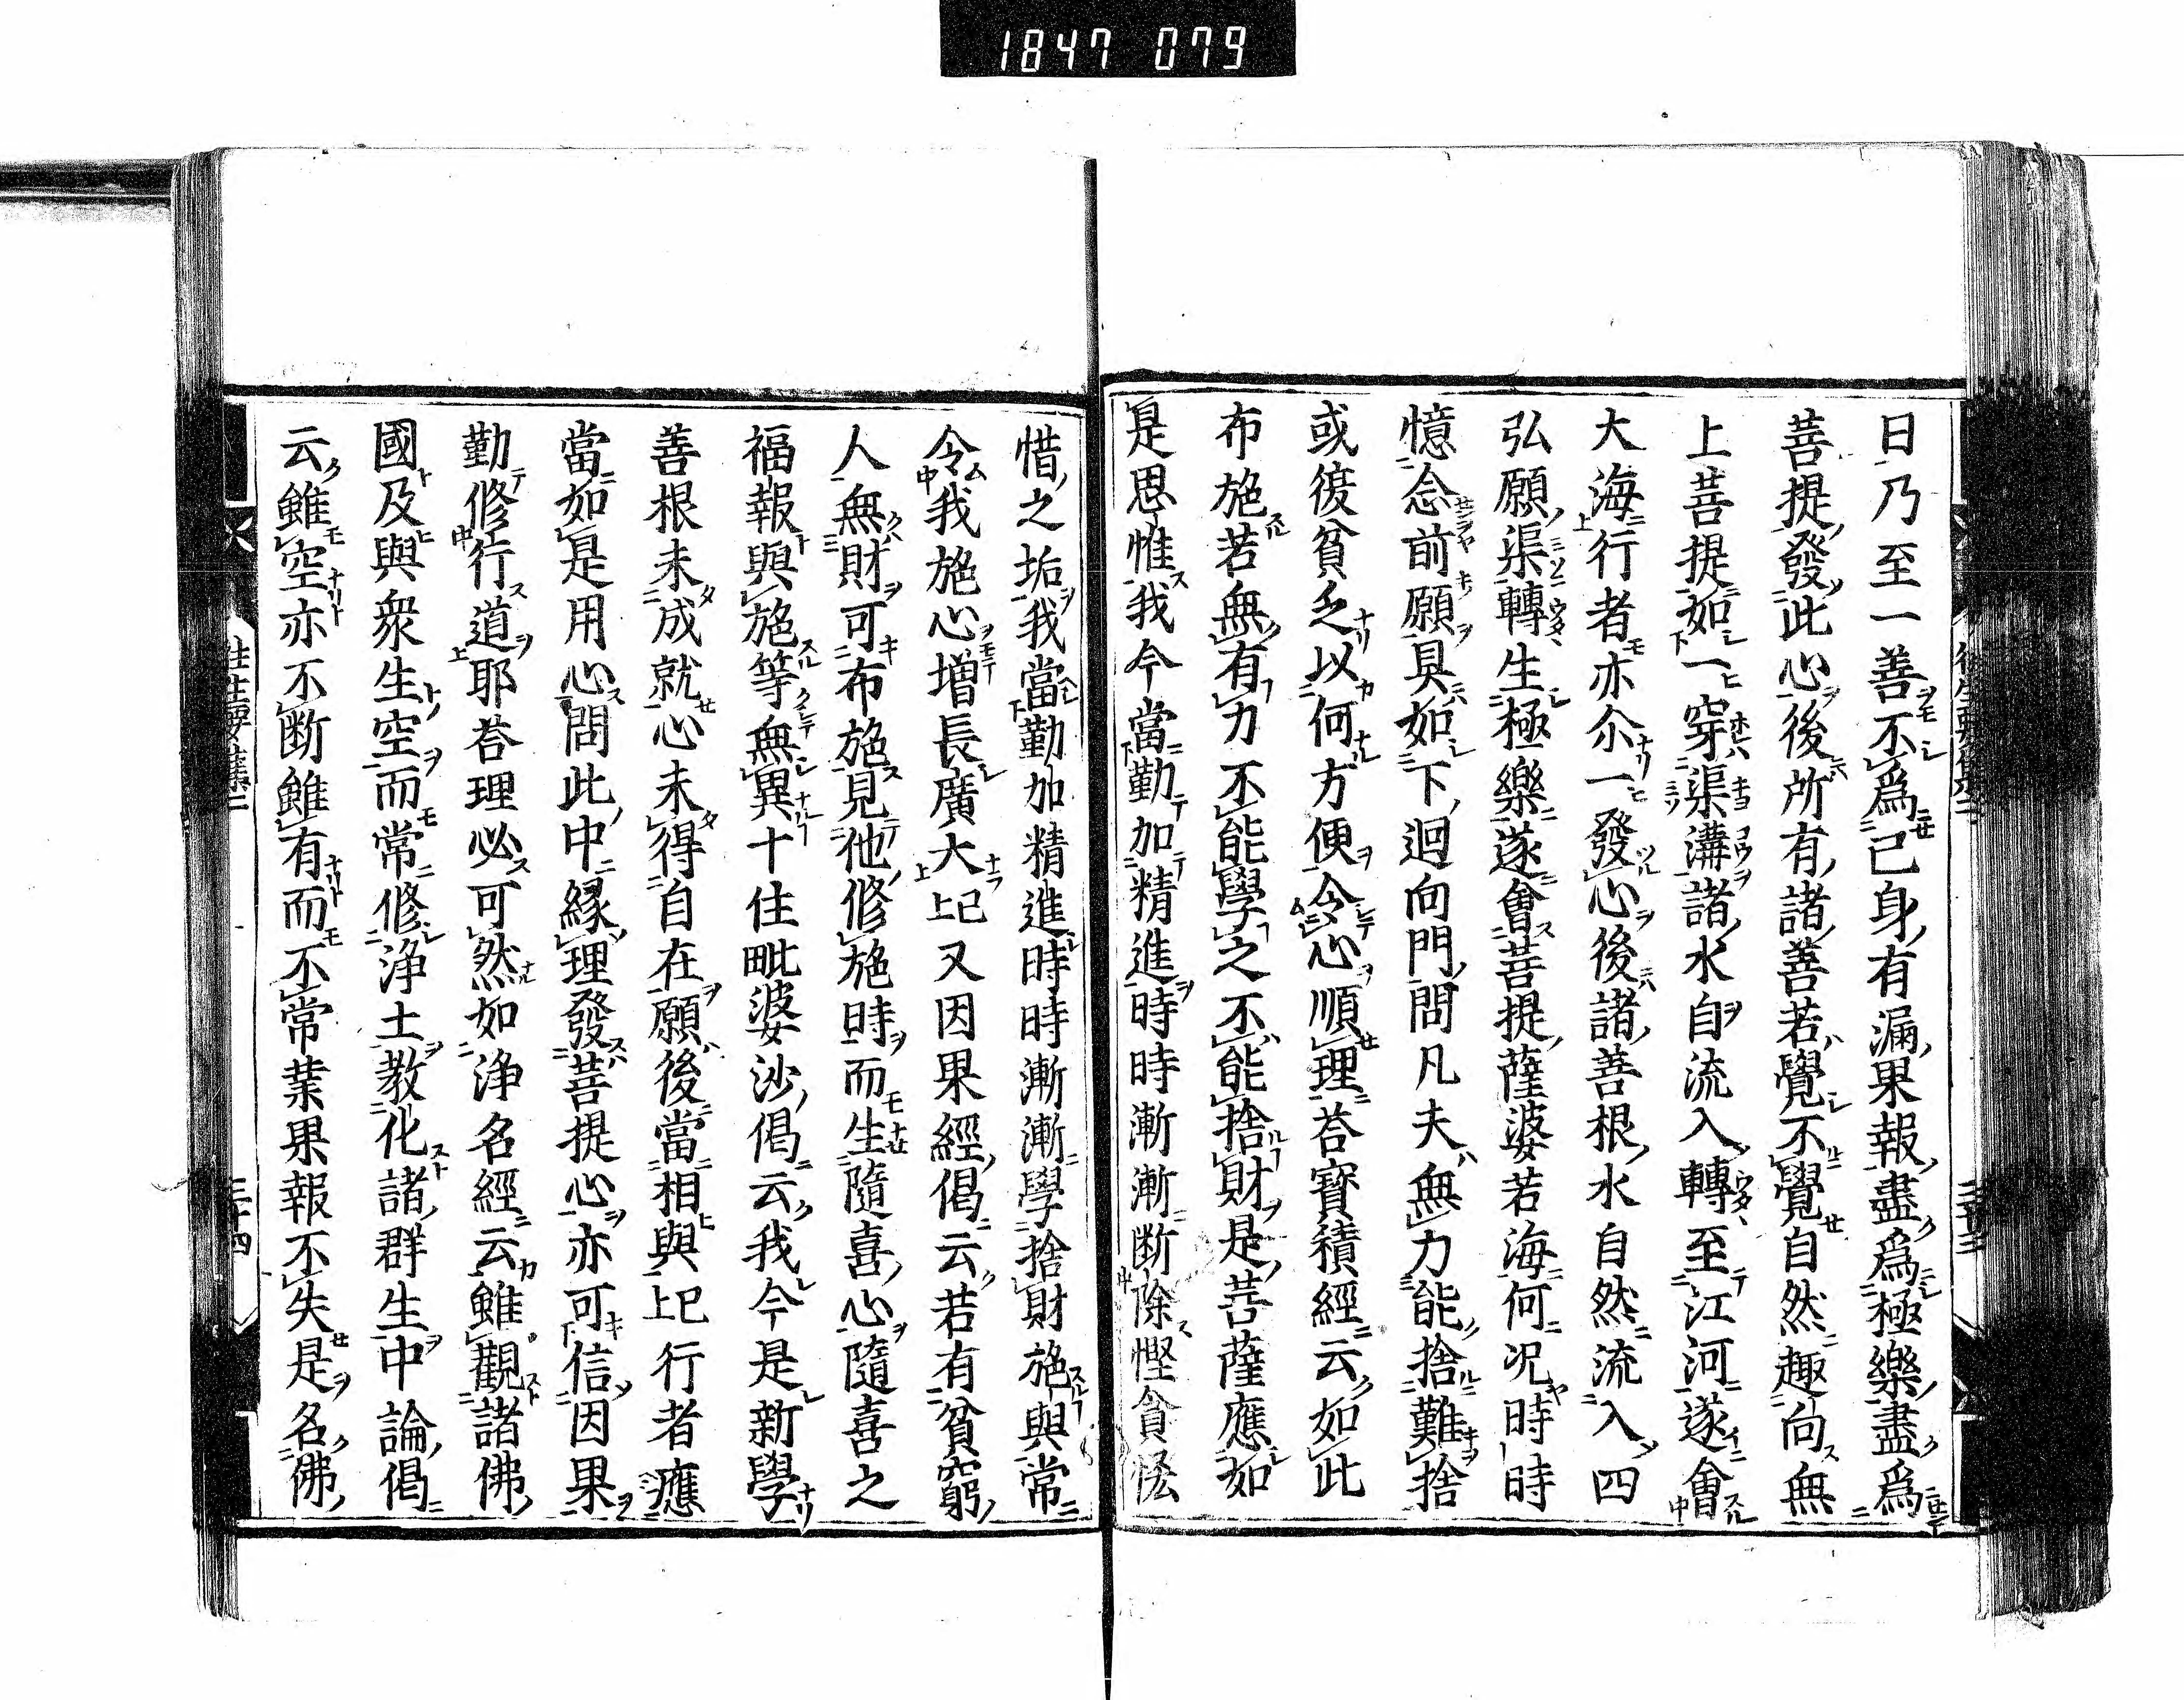 1847 079
日乃至一善不爲己身有漏果報盡爲極樂盡爲
菩提發此心後所有諸善若覺不覺自然趣向無
上菩提如一穿渠溝諸水自流入轉至江河遂會
大海行者亦尒一發心後諸善根水自然流入四
弘願渠轉生極樂遂會菩提薩婆若海何況時時
憶念前願具如下迴向門問凡夫無力能捨難捨
或復貧乏以何方便令心順理荅寳積經云如此
布施若無有力不能學之不能捨財是菩薩應如
是思惟我今當勤加精進時時漸漸断除慳貪恡
惜之垢我當勤加精進時時漸漸學捨財施與常
令我施心增長廣大上已又因果經偈云若有貧窮
人無財可布施見他修施時而生隨喜心隨喜之
福報與施等無異十住毗婆沙偈云我今是新學
善根未成就心未得自在願後當相與上已行者應
當如是用心問此中緣理發菩提心亦可信因果
勤修行道耶荅理必可然如淨名經云雖觀諸佛
國及與衆生空而常修淨土教化諸群生中論偈
云雖空亦不断雖有而不常業果報不失是名佛